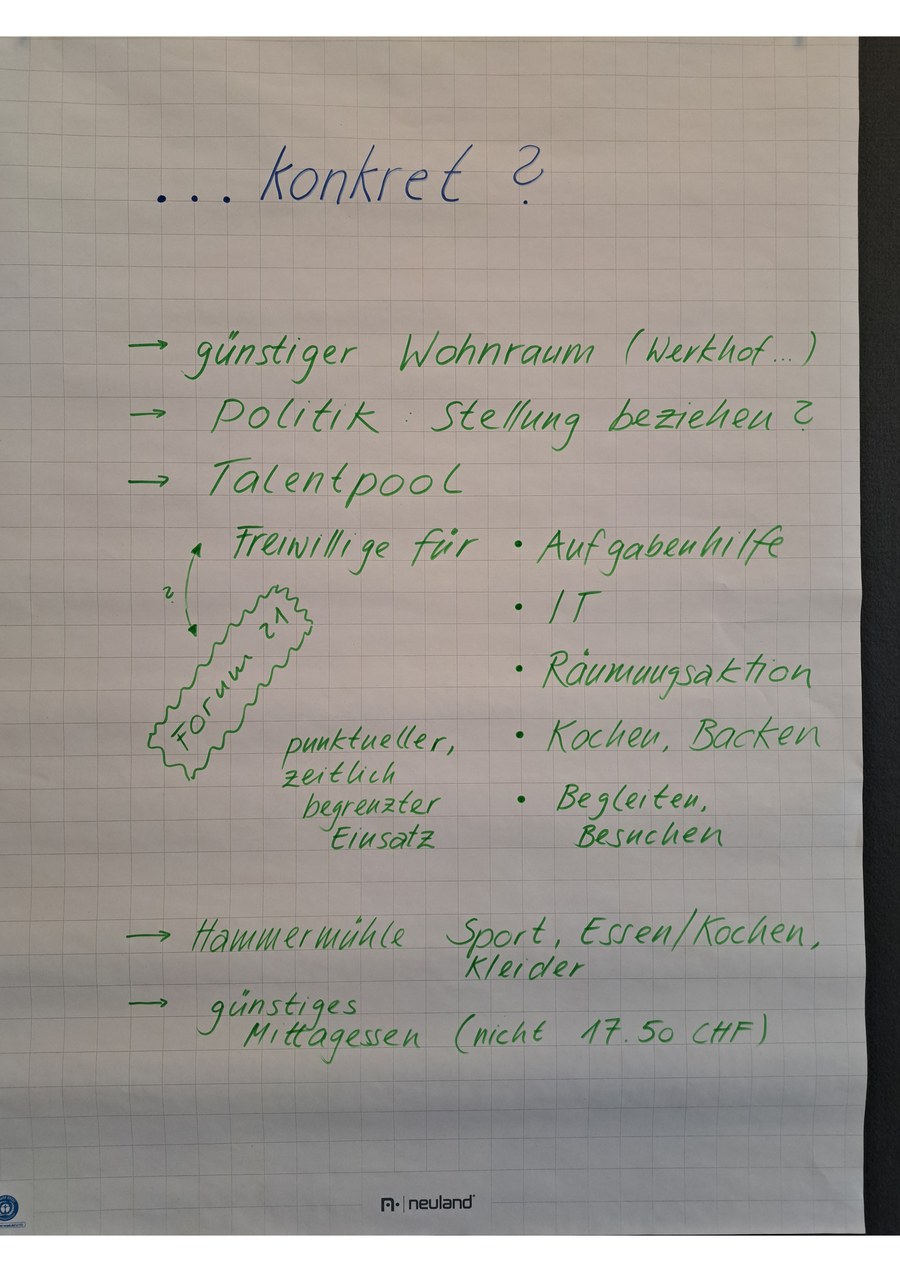 ... konkret ?
→ günstiger Wohnraum (Werkhof...)
→ Politik : Stellung beziehen ?
→ Talentpool
Freiwillige für • Aufgabenhilfe
?
Forum 21
• IT
• Räumungsaktion
punktueller,
zeitlich
begrenzter
Einsatz
• Kochen, Backen
• Begleiten,
Besuchen
→ Hammermühle Sport, Essen/Kochen,
Kleider
→ günstiges
Mittagessen (nicht 17.50 CHF)
neuland